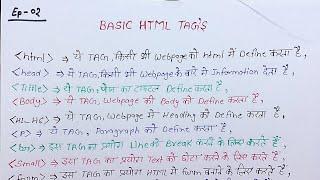 Ep-02
BASIC HTML TAG'S
<html> ⇒ ये TAG, किसी भी Webpage को html में Define करता है,
<head> ⇒ ये TAG, किसी भी Webpage के बारे में Information देता है,
<Title> ⇒ ये TAG, पेज का टाइटल Define करता है,
<Body> ⇒ ये TAG, Webpage की Body को Define करता है,
<H1-H6> ⇒ ये TAG, Webpage में Heading को Define करता है,
<P> ⇒ ये TAG, Paragraph को Define करता है,
<br> ⇒ इस TAG का प्रयोग line को Break करने के लिए करते हैं,
<Small> ⇒ इस TAG का प्रयोग Text को छोटा करने के लिए करते हैं,
<form> ⇒ इस TAG का प्रयोग HTML में form बनाने के लिए करते हैं,